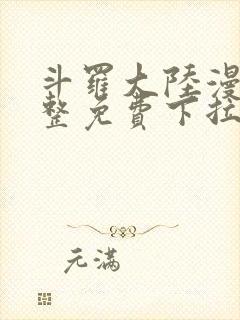 斗羅大陸漫
整免費下拉
元滿